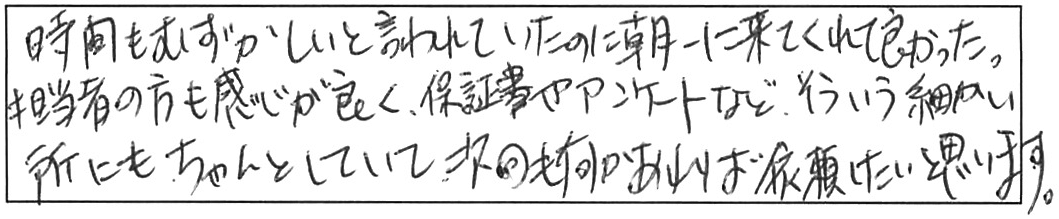 時間もむずかしいと言われていたのに朝一に来てくれて良かった。
担当者の方も感じが良く、保証書やアンケートなど、そういう細かい
所にもちゃんとしていて次回も何かあればお依頼したいと思います。